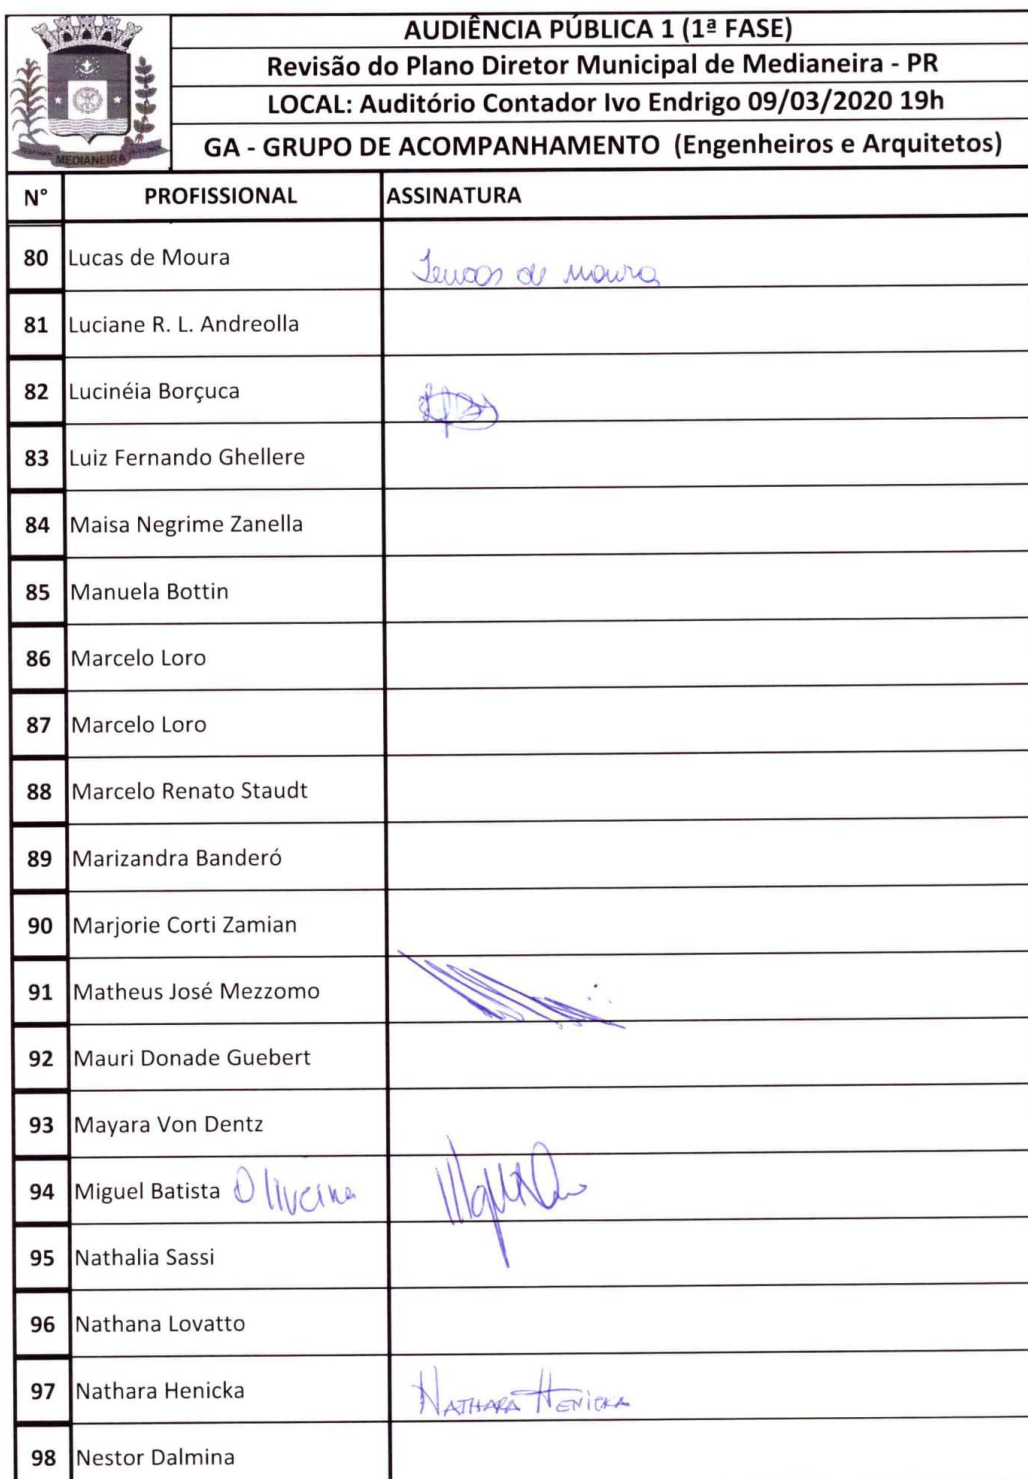 MEDIANEIRA
AUDIÊNCIA PÚBLICA 1 (1ª FASE)
Revisão do Plano Diretor Municipal de Medianeira - PR
LOCAL: Auditório Contador Ivo Endrigo 09/03/2020 19h
GA - GRUPO DE ACOMPANHAMENTO (Engenheiros e Arquitetos)
N° PROFISSIONAL ASSINATURA
80 Lucas de Moura Lucas de Moura
81 Luciane R. L. Andreolla
82 Lucinéia Borçuca
83 Luiz Fernando Ghellere
84 Maisa Negrime Zanella
85 Manuela Bottin
86 Marcelo Loro
87 Marcelo Loro
88 Marcelo Renato Staudt
89 Marizandra Banderó
90 Marjorie Corti Zamian
91 Matheus José Mezzomo
92 Mauri Donade Guebert
93 Mayara Von Dentz
94 Miguel Batista Oliveira
95 Nathalia Sassi
96 Nathana Lovatto
97 Nathara Henicka NATHARA HENICKA
98 Nestor Dalmina